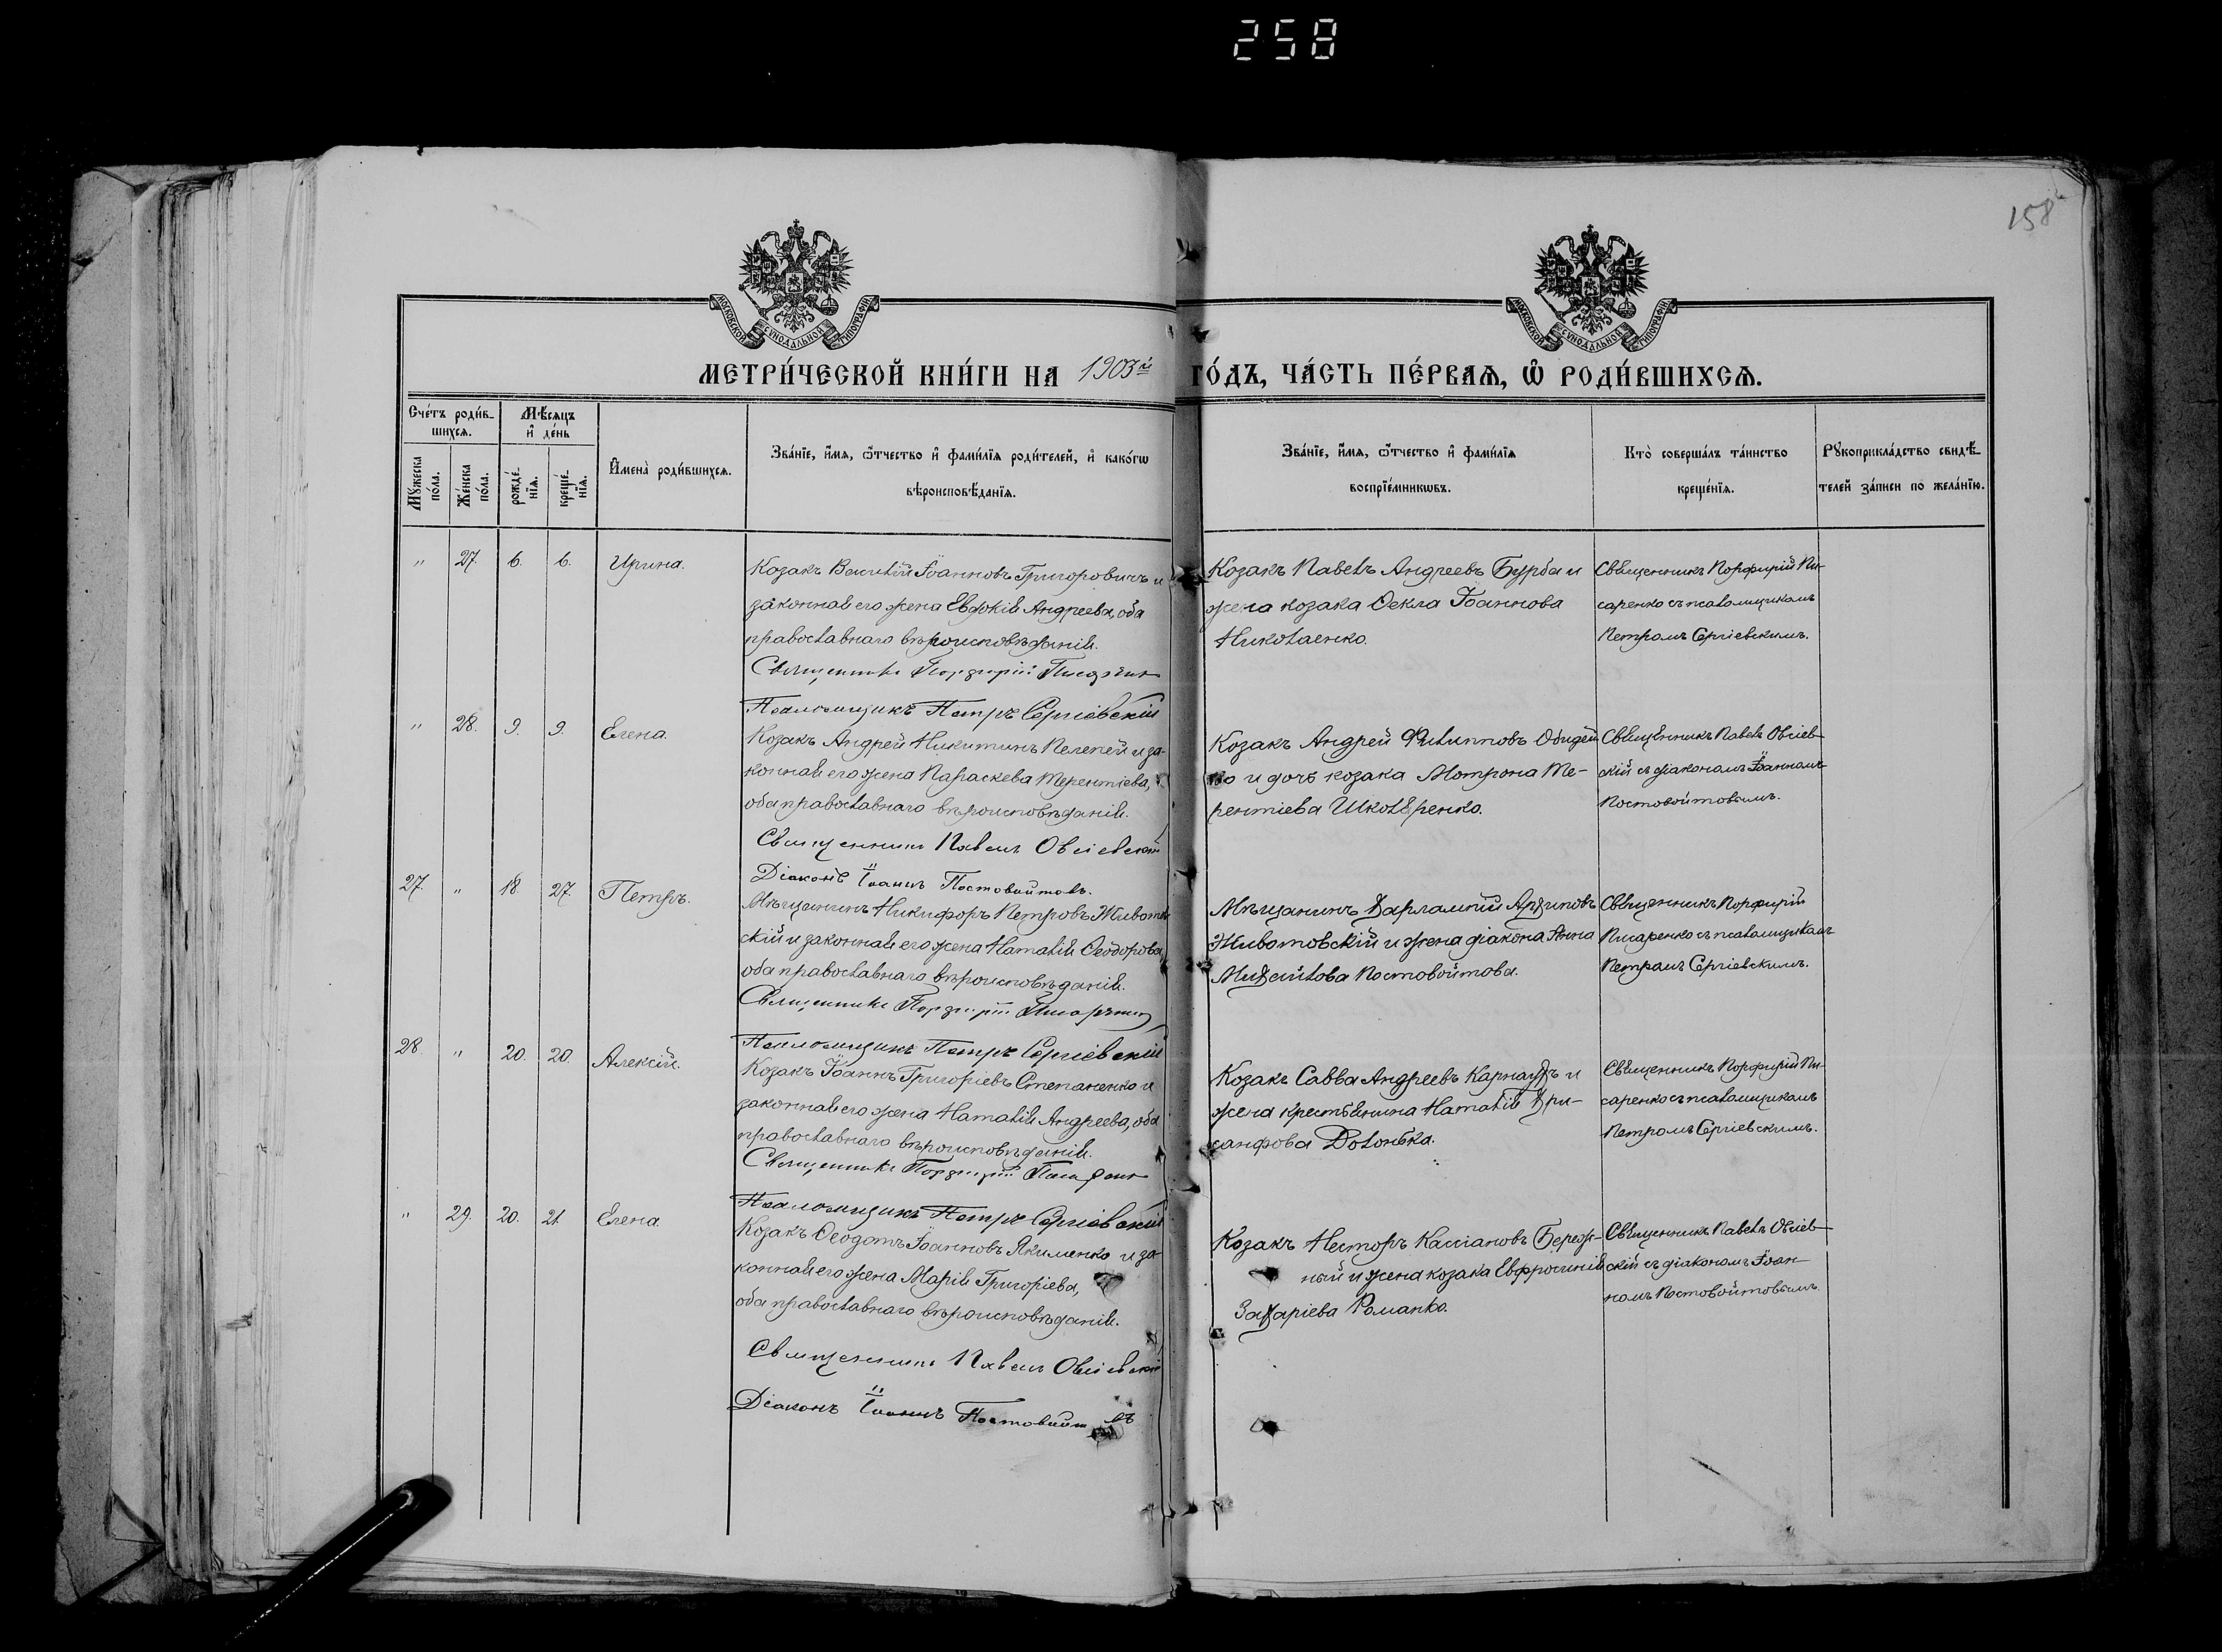 258
158
МОСКОВСКОЙ СѴНОДАЛЬНОЙ ТИПОГРАФІИ
МОСКОВСКОЙ СѴНОДАЛЬНОЙ ТИПОГРАФІИ
МЕТРИ́ЧЕСКОЙ КНИ́ГИ НА 1903й ГО́ДЪ, ЧА́СТЬ ПЕ́РВАѦ, Ѽ РОДИ́ВШИХСѦ.
Сче́тъ роди́в-
шихсѧ.
Мѣ́сѧцъ
и҆ де́нь
Мꙋ́жеска по́ла.
Же́нска по́ла.
рожде́-нїѧ.
креще́-нїѧ.
И҆мена̀ роди́вшихсѧ.
Зва́нїе, и҆́мѧ, ѻ҆́тчество и҆ фами́лїѧ роди́телей, и҆ како́гѡ
вѣроисповѣ́данїѧ.
Зва́нїе, и҆́мѧ, ѻ҆́тчество и҆ фами́лїѧ
воспрїе́мникѡвъ.
Кто̀ соверша́лъ та́инство
креще́нїѧ.
Рꙋкоприкла́дство свидѣ́-
телей за́писи по жела́нїю.
" 27. 6. 6. Ирина.
Козакъ Василій Іоанновъ Григоровичъ и
законная его жена Евдокія Андреева, оба
православнаго вѣроисповѣданія.
Священникъ Порфирій Писаренко
Псаломщикъ Петръ Сергіевскій
Козакъ Павелъ Андреевъ Бурба и
жена козака Ѳекла Іоаннова
Николаенко.
Священникъ Порфирій Пи-
саренко съ псаломщикомъ
Петромъ Сергіевскимъ.
" 28. 9. 9. Елена.
Козакъ Андрей Никитинъ Пелепей и за-
конная его жена Параскева Терентіева,
оба православнаго вѣроисповѣданія.
Священникъ Павелъ Овсіевскій
Діаконъ Іоаннъ Постовойтовъ.
Козакъ Андрей Филипповъ
и дочь козака Мотрона Те-
рентіева
Священникъ Павелъ Овсіев-
скій съ діакономъ Іоанномъ
Постовойтовымъ.
27. " 18. 27. Петръ.
Мѣщанинъ Никифоръ Петровъ Животов-
скій и законная его жена Наталія Ѳеодорова,
оба православнаго вѣроисповѣданія.
Священникъ Порфирій Писаренко
Псаломщикъ Петръ Сергіевскій
Мѣщанинъ Харлампій Архиповъ
Животовскій и жена діакона Анна
Михайлова Постовойтова.
Священникъ Порфирій
Писаренко съ псаломщикомъ
Петромъ Сергіевскимъ.
28. " 20. 20. Алексій.
Козакъ Іоаннъ Григоріевъ Степаненко и
законная его жена Наталія Андреева, оба
православнаго вѣроисповѣданія.
Священникъ Порфирій Писаренко
Псаломщикъ Петръ Сергіевскій
Козакъ Савва Андреевъ Карнаухъ и
жена крестьянина Наталія Хри-
санфова Долонька.
Священникъ Порфирій Пи-
саренко съ псаломщикомъ
Петромъ Сергіевскимъ.
" 29. 20. 21. Елена
Козакъ Ѳеодотъ Іоанновъ Якименко и за-
конная его жена Марія Григоріева,
оба православнаго вѣроисповѣданія.
Священникъ Павелъ Овсіевскій
Діаконъ Іоаннъ Постовойтовъ
Козакъ Несторъ Кассіановъ Береж-
ный и жена козака Евфросинія
Захаріева Романко.
Священникъ Павелъ Овсіев-
скій съ діакономъ Іоан-
номъ Постовойтовымъ.